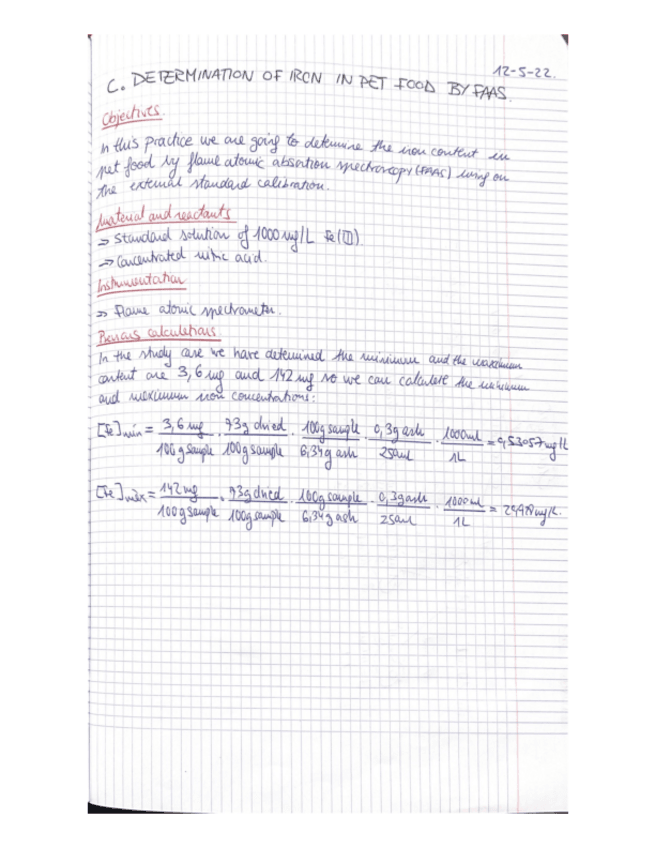 12-5-22.
C. DETERMINATION OF IRON IN PET FOOD BY FAAS.
Objectives.
In this practice we are going to determine the iron content in
pet food by flame atomic absortion spectroscopy (FAAS) using on
the external standard calibration.
Material and reactants
→ Standard solution of 1000 mg/L Fe(III)
→ Concentrated nitric acid.
Instrumentation
→ Flame atomic spectrometer.
Previous calculations
In the study case we have determined the minimum and the maximum
content are 3,6 mg and 142 mg so we can calculate the minimum
and maximum iron concentrations:
[Fe]min = 3,6 mg / 100 g sample · 93g dried / 100g sample · 100g sample / 6,34 g ash · 0,3g ash / 250ml · 1000ml / 1L = 0,53057 mg/L
[Fe]máx = 142 mg / 100 g sample · 93g dried / 100g sample · 100g sample / 6,34 g ash · 0,3g ash / 250ml · 1000 ml / 1L =